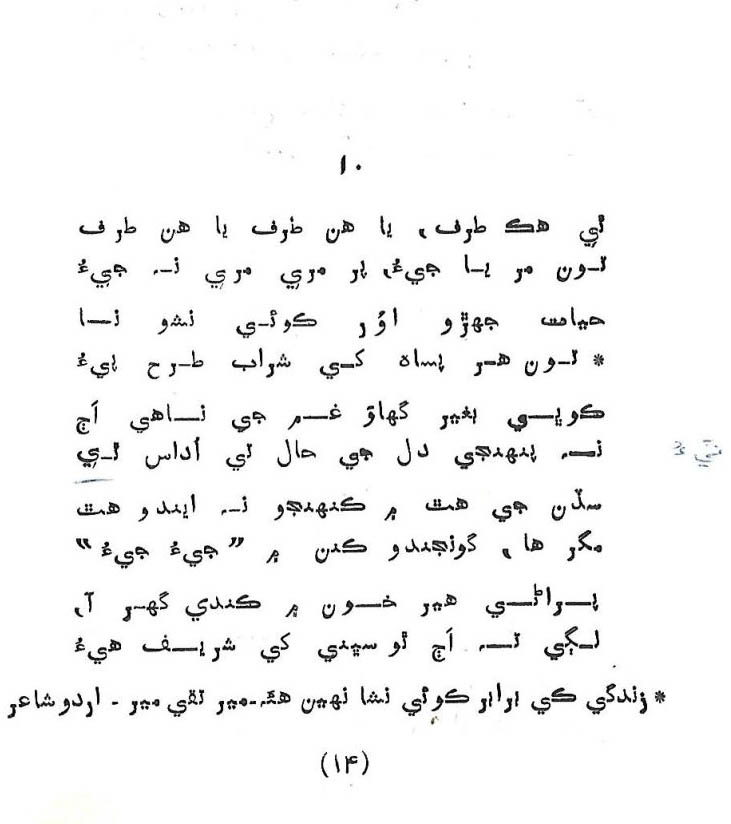 ۱۰
ٿي هڪ طرف، يا هن طرف يا هن طرف
تون مر يا جيءُ، پر مري مري نہ جيءُ
حيات جھڙو اؤر ڪوئي نشو نا
* تون هر پساهہ کي شراب طرح پيءُ
ڪوپي بغير گھاوَ غم جي ناهي اڄ
نہ پنهنجي دل جي حال تي اُداس ٿي
سڏن جي هٿ ۾ ڪنهنجو نہ ايندو هٿ
مگر ها، گونجندو ڪنن ۾ "جيءُ جيءُ"
پراڻي هير خون ۾ ڪندي گھر آ،
لڳي تہ اڄ ٿو سڀني کي شريف هيءُ
* زندگي کي برابر ڪوئي نشا نهين هئہ-مير تقي مير - اردو شاعر
(۱۴)